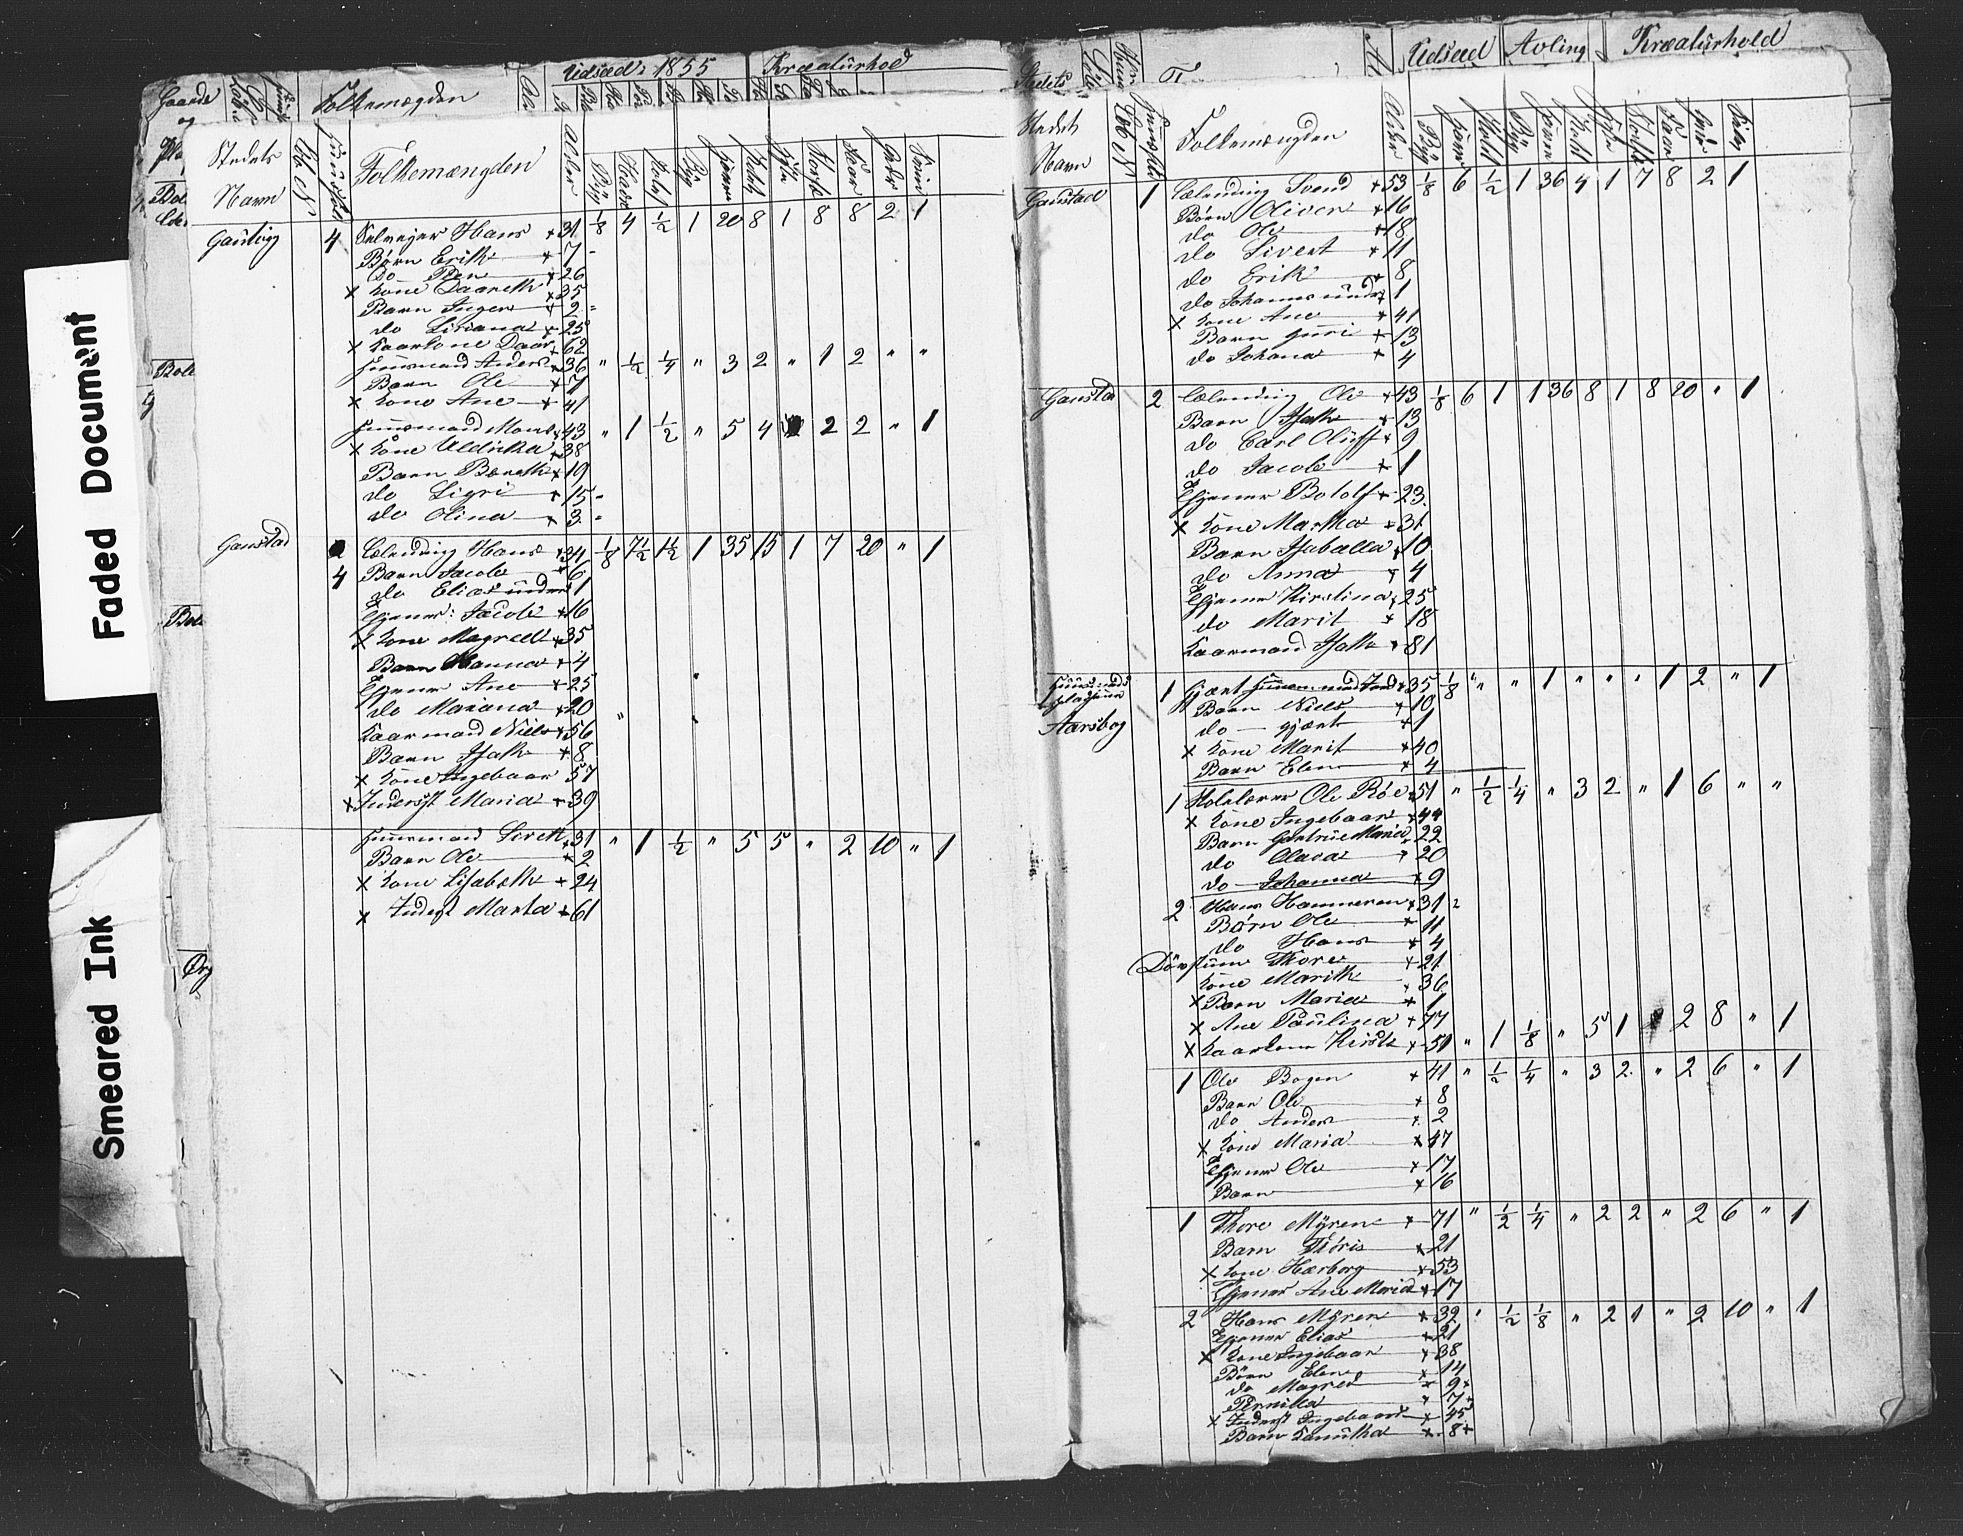 Faded Document
Smeared Ink
Gaarde og
Folkemægden
Udsæd i 1855
Kreaturhold
Stedets Navn
Folkemængden
Alder
Byg
Havre
Gautvig 4 Selveyer Hans × 31 1/8 4 1/2 1 20 8 1 8 8 2 1
Børn Erik × 7
Do Peen × 26
× Kone Daareth × 35
Barn Inger × 2
do Liviana × 25
× Kaarkone Daar × 62
Huusmand Anders × 36 " 1/2 1/4 " 3 2 " 1 2 " "
Barn Ole × 7
× Kone Ane × 41
Huusmand Mons × 43 " 1 1/2 " 5 4 2 2 " 1
× Kone Uldrika × 38
Barn Bereth × 19
do Sigri × 15
do Olina × 3
Gaustad Leilending Hans × 34 1/8 7 1/2 1 1/2 1 35 15 1 7 20 " 1
4 Barn Jacob × 6
do Elias under 1
Tjener: Jacob × 16
× Kone Magreet × 35
Barn Hanna × 4
Tjener Ane × 25
do Mariana × 20
Kaarmand Niels × 56
Barn Isak × 8
× Kone Ingebaar 57
× Inderst Maria × 39
Huusmand Sivert × 31 " 1 1/2 " 5 5 " 2 10 " 1
Barn Ole × 2
× Kone Lisabeth × 24
× Inderst Marta × 61
Stedets
Udsæd Avling Kreaturhold
Stedets Navn
Folkemængden
Alder
Gaustad 1 Leilending Svend × 53 1/8 6 1/2 1 36 4 1 7 8 2 1
Børn Oliver × 16
do Ole × 18
do Sivert × 11
do Erik × 8
do Johannes under 1
× Kone Ane × 41
Barn Guri × 13
do Johana × 4
Gaustad 2 Leilending Ole × 43 1/8 6 1 1 36 8 1 8 20 " 1
Barn Isak × 13
do Carl Oluf × 9
do Jacob × 1
Tjener Botolf × 23
× Kone Martha × 31
Barn Isabella × 10
do Anna × 4
Tjener Kirstina × 25
do Marit × 18
Kaarmand Isak × 81
Huusmands pladsene
Aarsbog
1 Gjært Huusmand Jord × 35 1/8 " " 1 " " " 1 2 " 1
Barn Niels × 10
do Gjært × 1
× Kone Marit × 40
Barn Elen × 4
1 Skolelærer Ole Röe × 51 " 1/2 1/4 " 3 2 " 1 6 " "
× Kone Ingebaar × 44
Barn Gurtrue Maria × 22
do Olava × 20
do Johanna × 9
2 Hans Hammeren × 31
Børn Ole × 11
do Hans × 4
Dövstum Thore × 21
Kone Marith × 36
× Barn Maria × 1
× Ane Paulina × 77
× Kaarkone Kirsti × 51 " 1 1/8 " 5 1 2 8 " 1
1 Ole Bogen × 41 " 1/2 1/4 " 3 2 " 2 6 " 1
Barn Ole × 8
do Anders × 2
× Kone Maria × 47
Tjener Ole × 17
Barn × 16
1 Thore Myren × 71 " 1/2 1/4 " 2 2 " 2 6 " 1
Barn Thoris × 21
× Kone Hærborg × 53
Tjener Ane Maria × 17
2 Hans Myren × 32 " 1/2 1/8 " 2 1 " 2 10 " 1
Tjener Elias × 21
× Kone Ingebaar × 38
Børn Elen × 14
do Magret × 9
Pernilla × 7
× Inderst Ingebaar × 45
Barn Kanutha × 8